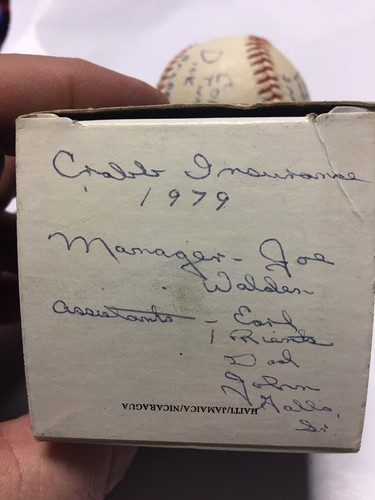 Crabb Insurance
1979
Manager - Joe
Walden
Assistants - Earl
Rients
Dad
John
Gallo,
Sr.
HAITI/JAMAICA/NICARAGUA